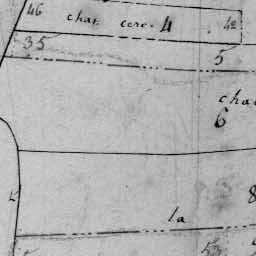 46 char cere. 4 42
35 5
cha
6
8
la
53